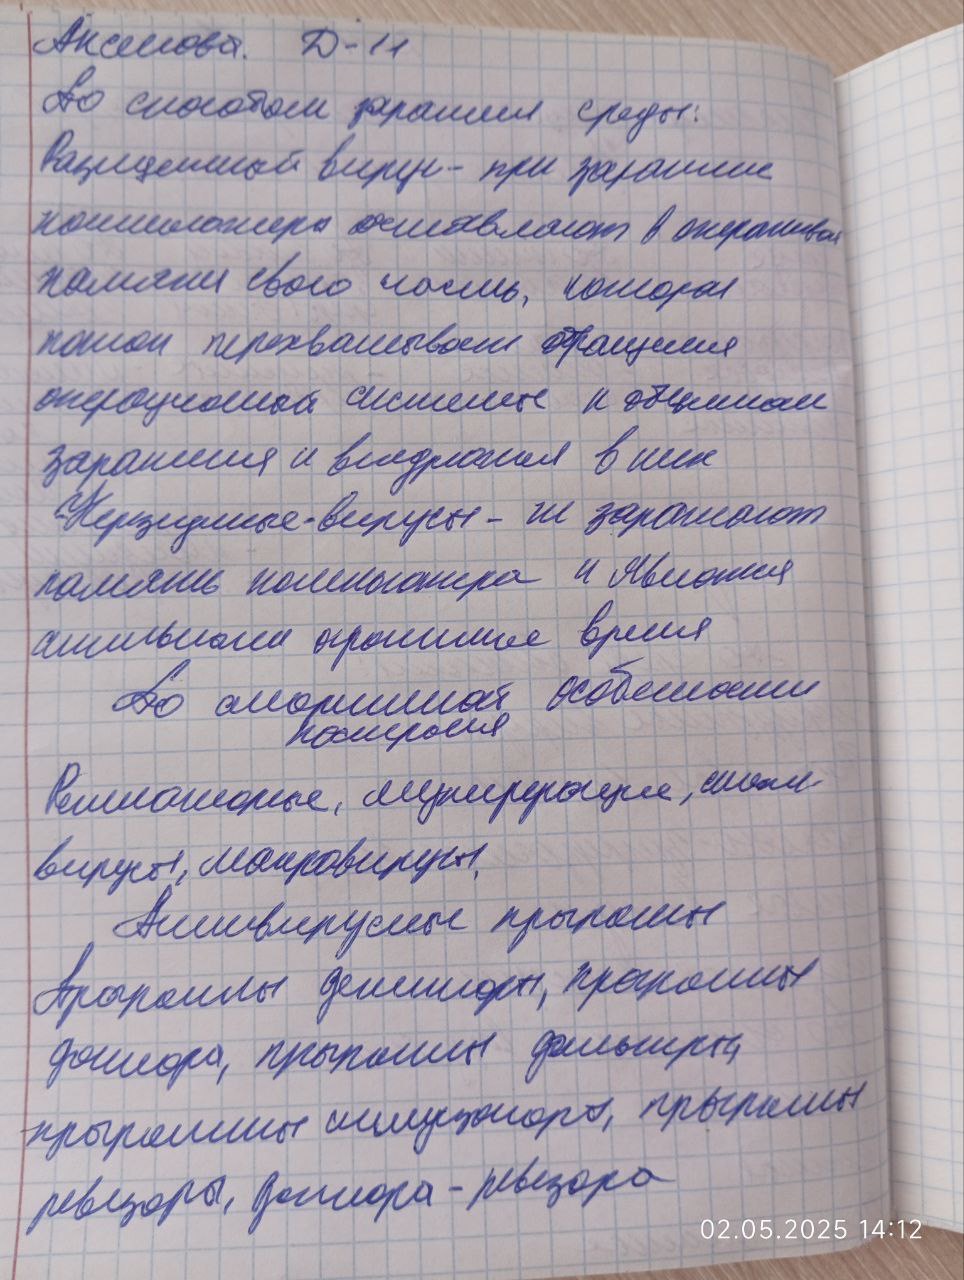 Аксенова. Д-11
По способам заражения среды:
Резидентный вирус - при заражение
компьютера оставляют в оперативной
памяти свою часть, которая
потом перехватывает обращения
операционной системы к объектам
заражения и внедряется в них
Нерезидентные-вирусы - не заражают
память компьютера и являются
активными ограниченное время
По алгоритмной особенности
построения
Репликаторные, мутирующие, стелс-
вирусы, макровирусы,
Антивирусные программы
Программы детекторы, программы
доктора, программы фильтры,
программы иммунизаторы, программы
ревизоры, доктора - ревизора
02.05.2025 14:12